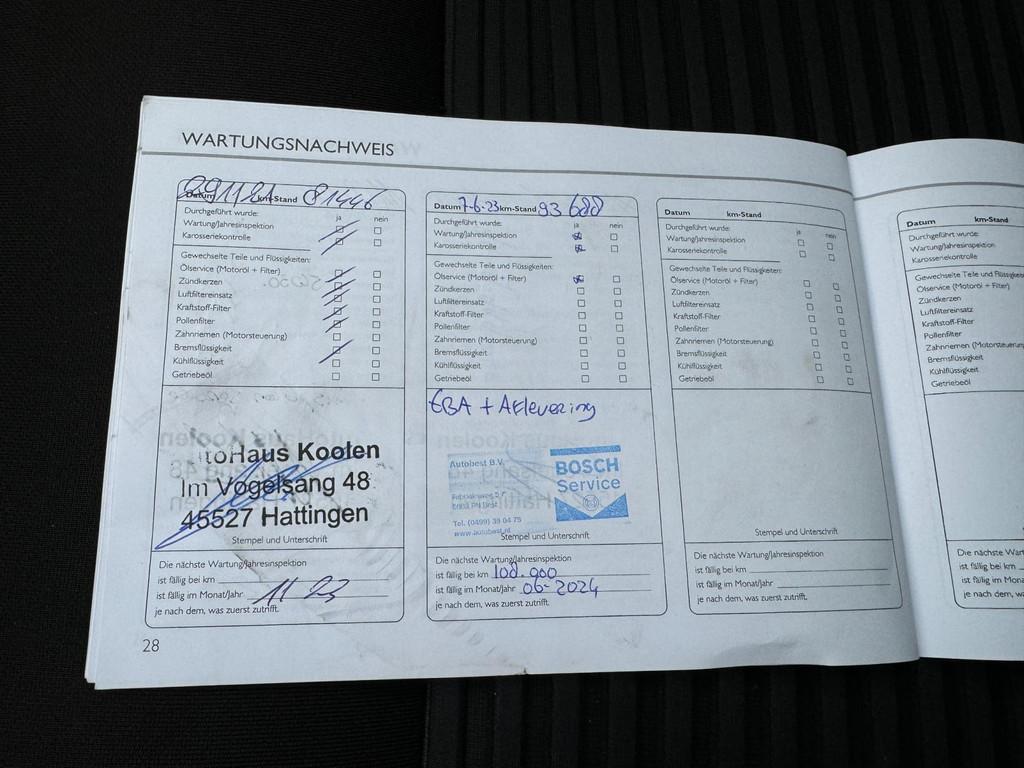 WARTUNGSNACHWEIS
Datum km-Stand 81446
Durchgeführt wurde: ja nein
Wartung/Jahresinspektion
Karosseriekontrolle
Gewechselte Teile und Flüssigkeiten:
Ölservice (Motoröl + Filter)
Zündkerzen
Luftfiltereinsatz
Kraftstoff-Filter
Pollenfilter
Zahnriemen (Motorsteuerung)
Bremsflüssigkeit
Kühlflüssigkeit
Getriebeöl
toHaus Koolen
Im Vogelsang 48
45527 Hattingen
Stempel und Unterschrift
Die nächste Wartung/Jahresinspektion
ist fällig bei km
ist fällig im Monat/Jahr 11 23
je nach dem, was zuerst zutrifft.
28
Datum 7-6-23 km-Stand 93 688
Durchgeführt wurde: ja nein
Wartung/Jahresinspektion
Karosseriekontrolle
Gewechselte Teile und Flüssigkeiten:
Ölservice (Motoröl + Filter)
Zündkerzen
Luftfiltereinsatz
Kraftstoff-Filter
Pollenfilter
Zahnriemen (Motorsteuerung)
Bremsflüssigkeit
Kühlflüssigkeit
Getriebeöl
GBA + Aflevering
Autobest B.V.
BOSCH
Service
Tel. (0499) 39 04 75
www.autobest.nl
Stempel und Unterschrift
Die nächste Wartung/Jahresinspektion
ist fällig bei km 108.000
ist fällig im Monat/Jahr 06-2024
je nach dem, was zuerst zutrifft.
Datum km-Stand
Durchgeführt wurde: ja nein
Wartung/Jahresinspektion
Karosseriekontrolle
Gewechselte Teile und Flüssigkeiten:
Ölservice (Motoröl + Filter)
Zündkerzen
Luftfiltereinsatz
Kraftstoff-Filter
Pollenfilter
Zahnriemen (Motorsteuerung)
Bremsflüssigkeit
Kühlflüssigkeit
Getriebeöl
Stempel und Unterschrift
Die nächste Wartung/Jahresinspektion
ist fällig bei km
ist fällig im Monat/Jahr
je nach dem, was zuerst zutrifft.
Datum km-Stand
Durchgeführt wurde:
Wartung/Jahresinspektion
Karosseriekontrolle
Gewechselte Teile und Flüssigkeiten
Ölservice (Motoröl + Filter)
Zündkerzen
Luftfiltereinsatz
Kraftstoff-Filter
Pollenfilter
Zahnriemen (Motorsteuerun
Bremsflüssigkeit
Kühlflüssigkeit
Getriebeöl
Stempel
Die nächste Wartung/Jahresin
ist fällig bei km
ist fällig im Monat/Jahr
je nach dem, was zuerst